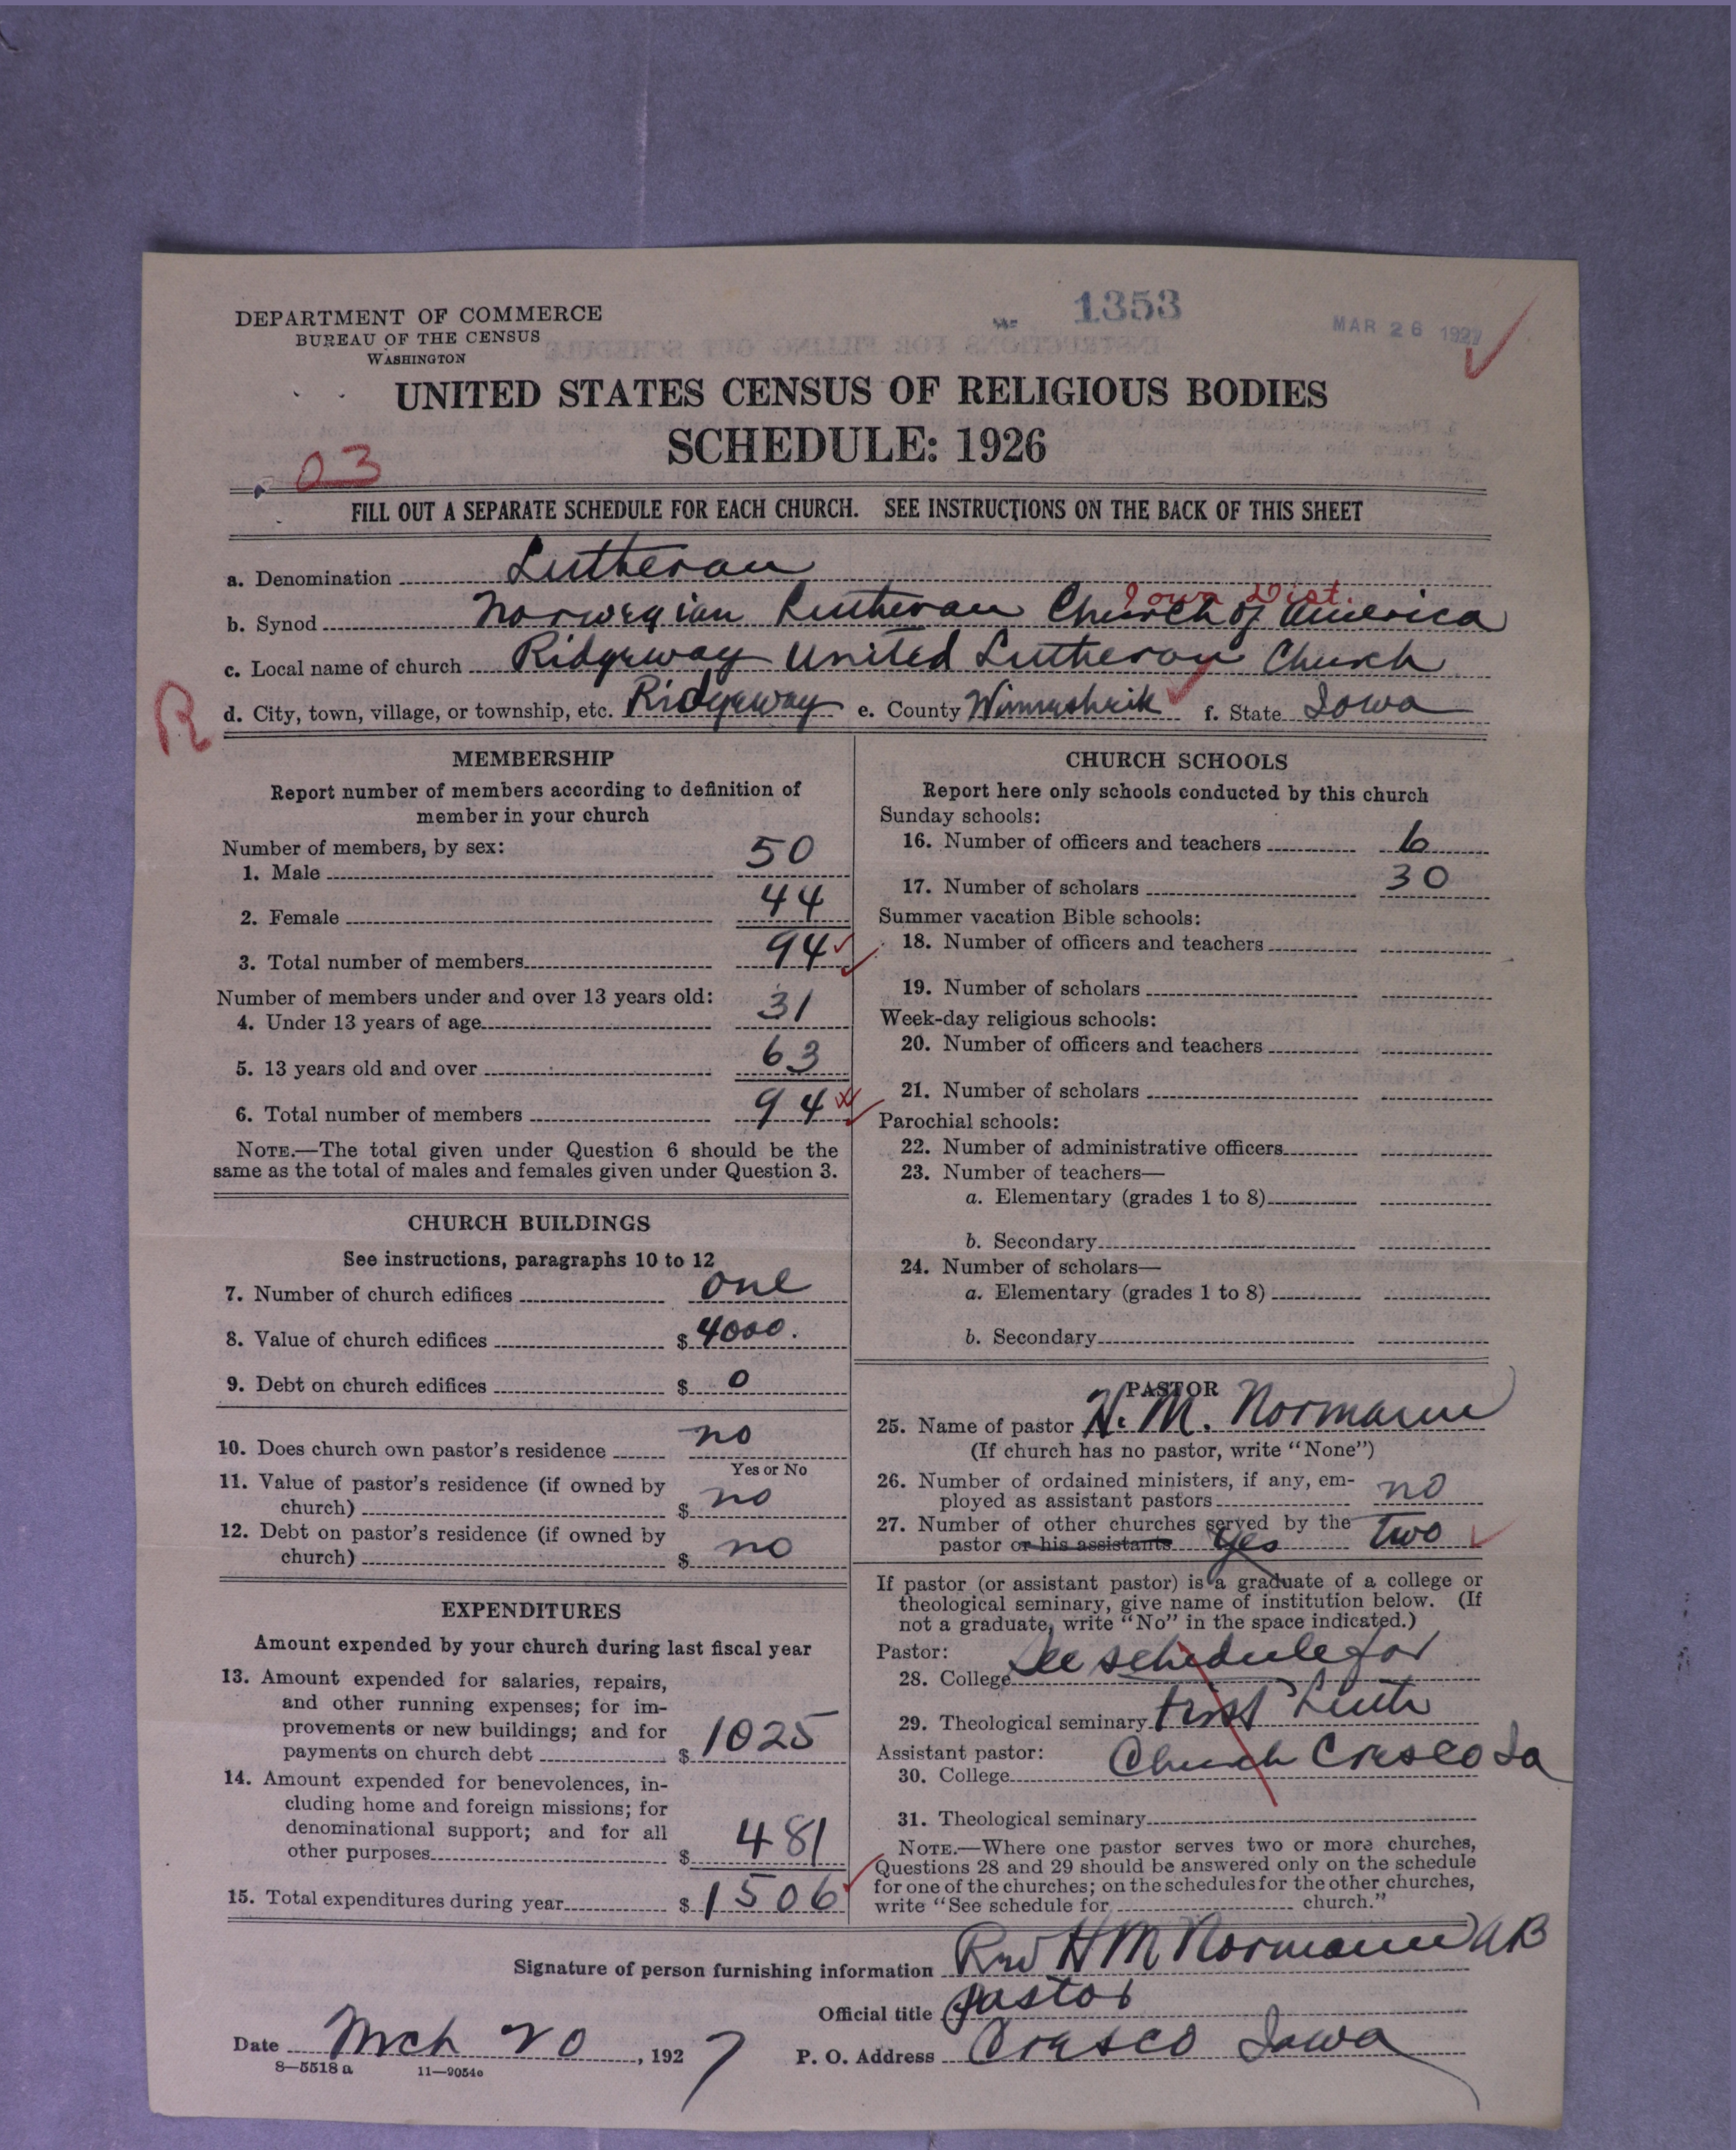 1353
MAR 26 1927
DEPARTMENT OF COMMERCE
BUREAU OF THE CENSUS
WASHINGTON
UNITED STATES CENSUS OF RELIGIOUS BODIES
SCHEDULE: 1926
03
FILL OUT A SEPARATE SCHEDULE FOR EACH CHURCH. SEE INSTRUCTIONS ON THE BACK OF THIS SHEET
a. Denomination Lutheran
Iowa Dist.
b. Synod Norwegian Lutheran Church of America
c. Local name of church Ridgeway United Lutheran Church
R
d. City, town, village, or township, etc. Ridgeway e. County Winneshiek f. State Iowa
MEMBERSHIP
Report number of members according to definition of
member in your church
Number of members, by sex:
1. Male 50
2. Female 44
3. Total number of members 94
Number of members under and over 13 years old:
4. Under 13 years of age 31
5. 13 years old and over 63
6. Total number of members 94
NOTE.—The total given under Question 6 should be the
same as the total of males and females given under Question 3.
CHURCH BUILDINGS
See instructions, paragraphs 10 to 12
7. Number of church edifices one
8. Value of church edifices $ 4000.
9. Debt on church edifices $ 0
10. Does church own pastor's residence no
Yes or No
11. Value of pastor's residence (if owned by
church) $ no
12. Debt on pastor's residence (if owned by
church) $ no
EXPENDITURES
Amount expended by your church during last fiscal year
13. Amount expended for salaries, repairs,
and other running expenses; for im-
provements or new buildings; and for
payments on church debt $ 1025
14. Amount expended for benevolences, in-
cluding home and foreign missions; for
denominational support; and for all
other purposes $ 481
15. Total expenditures during year $ 1506
CHURCH SCHOOLS
Report here only schools conducted by this church
Sunday schools:
16. Number of officers and teachers 6
17. Number of scholars 30
Summer vacation Bible schools:
18. Number of officers and teachers
19. Number of scholars
Week-day religious schools:
20. Number of officers and teachers
21. Number of scholars
Parochial schools:
22. Number of administrative officers
23. Number of teachers—
a. Elementary (grades 1 to 8)
b. Secondary
24. Number of scholars—
a. Elementary (grades 1 to 8)
b. Secondary
PASTOR
25. Name of pastor H. M. Normann
(If church has no pastor, write "None")
26. Number of ordained ministers, if any, em-
ployed as assistant pastors no
27. Number of other churches served by the
pastor or his assistants yes two
If pastor (or assistant pastor) is a graduate of a college or
theological seminary, give name of institution below. (If
not a graduate, write "No" in the space indicated.)
Pastor:
28. College See schedule for
29. Theological seminary First Luth
Assistant pastor:
30. College Church Cresco Ia
31. Theological seminary
NOTE.—Where one pastor serves two or more churches,
Questions 28 and 29 should be answered only on the schedule
for one of the churches; on the schedules for the other churches,
write "See schedule for church."
Signature of person furnishing information Rev H M Normann AB
Official title Pastor
Date Mch 20, 1927 P. O. Address Cresco Iowa
8—5518 a 11—9054c